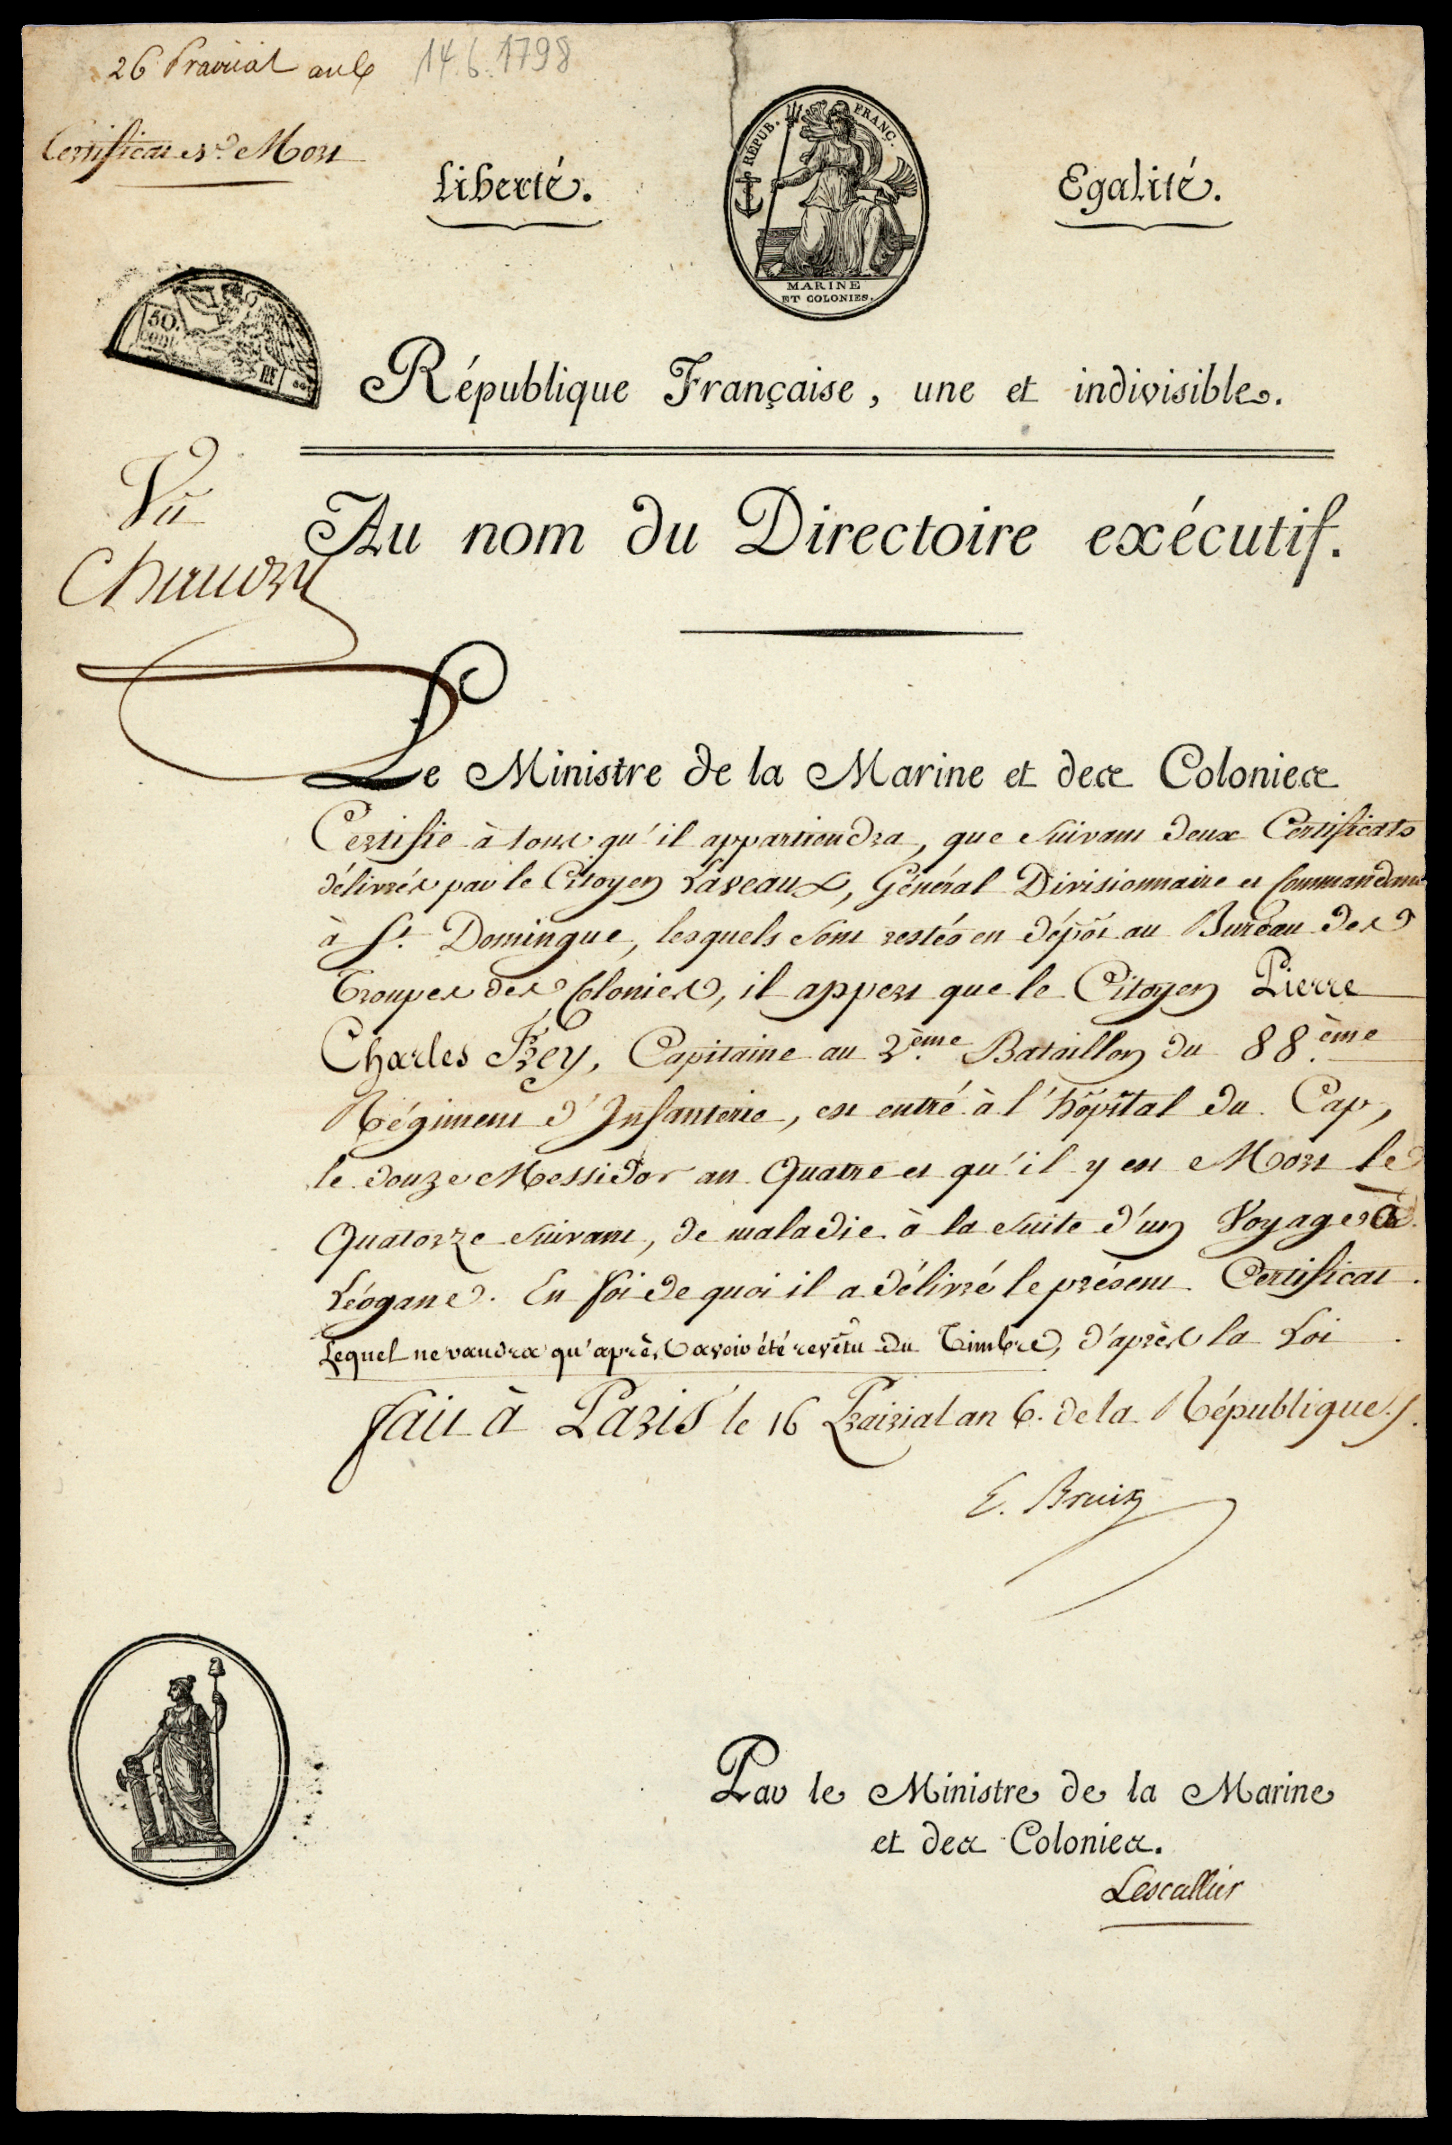 26 Prairial an 6 14.6.1798
Certificat de Mort
Liberté.
RÉPUB. FRANC.
MARINE
ET COLONIES.
Egalité.
50.
CENT
RF
République Française, une et indivisible.
Vu
Au nom du Directoire exécutif.
Le Ministre de la Marine et des Colonies
Certifie à tous qu'il appartiendra, que suivant deux Certificats
délivrés par le Citoyen Laveaux, Général Divisionnaire et Commandant
à St. Domingue, lesquels sont restés en dépôt au Bureau des
Troupes des Colonies, il appert que le Citoyen Pierre
Charles Frey, Capitaine au 2.ème Bataillon du 88.ème
Régiment d'Infanterie, est entré à l'hôpital du Cap,
le douze Messidor an Quatre et qu'il y est Mort le
Quatorze suivant, de maladie à la suite d'un Voyage à
Léogane. En foi de quoi il a délivré le présent Certificat
Lequel ne vaudra qu'après avoir été revêtu du Timbre, d'après la Loi
fait à Paris le 16 Prairial an 6. de la République.
E. Bruix
Par le Ministre de la Marine
et des Colonies.
Lescallier